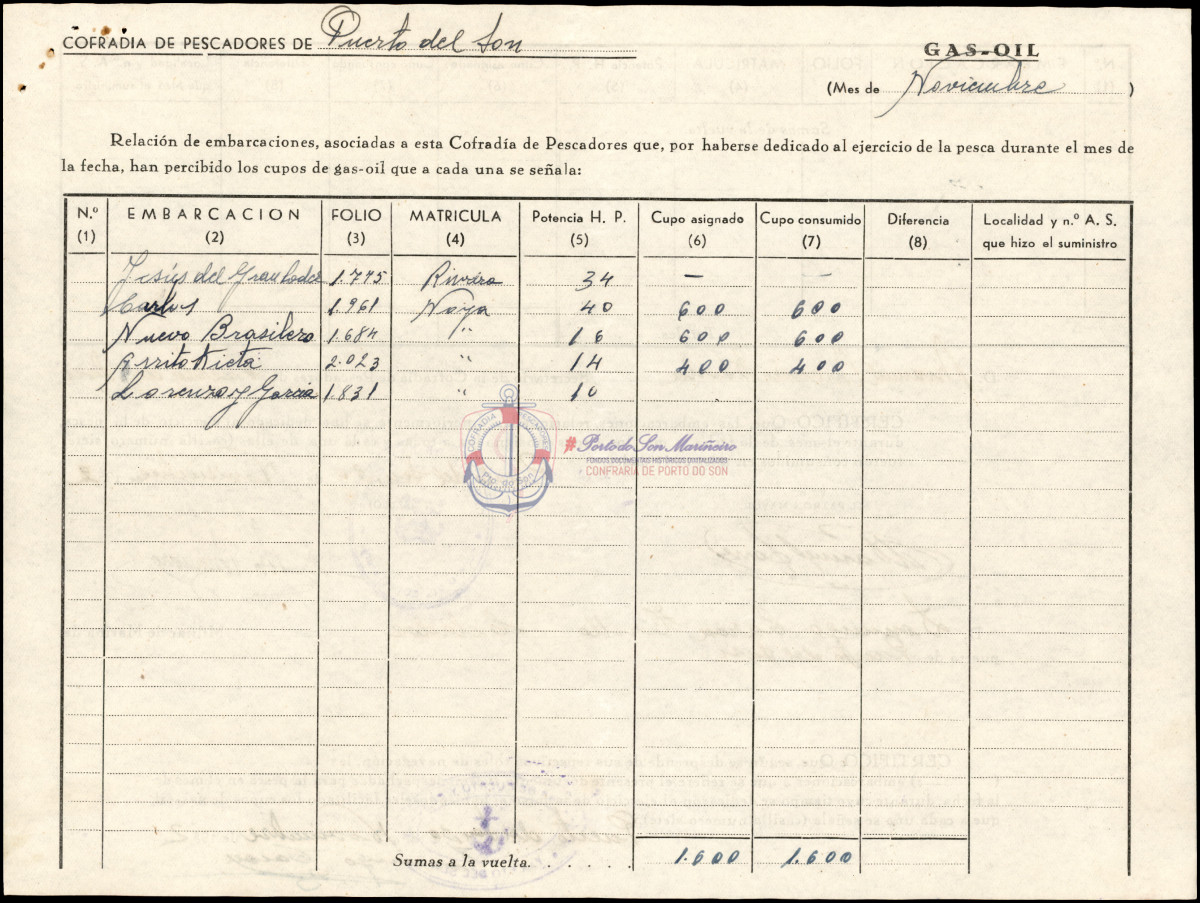 COFRADIA DE PESCADORES DE Puerto del Son
GAS-OIL
(Mes de Noviembre )
Relación de embarcaciones, asociadas a esta Cofradía de Pescadores que, por haberse dedicado al ejercicio de la pesca durante el mes de
la fecha, han percibido los cupos de gas-oil que a cada una se señala:
N.º EMBARCACION FOLIO MATRICULA Potencia H. P. Cupo asignado Cupo consumido Diferencia Localidad y n.º A. S.
(1) (2) (3) (4) (5) (6) (7) (8) que hizo el suministro
Jesús del 1.775 34 — —
Carlos 1.961 Noya 40 600 600
Nuevo Brasilero 1.684 " 16 600 600
2.023 " 14 400 400
Lorenzo y Garcia 1831 " 10
COFRADIA PESCADORES
Pto. do Son
#Porto do Son Mariñeiro
FONDOS DOCUMENTAIS HISTÓRICOS DIXITALIZADOS
CONFRARÍA DE PORTO DO SON
Sumas a la vuelta. . . . . . 1.600 1.600